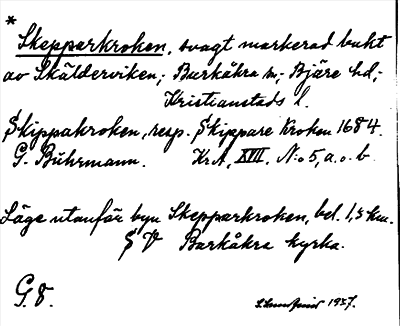 *
Skepparkroken, svagt markerad bukt
av Skälderviken; Barkåkra sn; Bjäre hd;
Kristianstads l.
Skippakroken, resp. Skippare Kroken 1684.
G. Buhrmann. KrA, XVII. N:o 5, a. o. b.
Läge utanför byn Skepparkroken, bel. 1,5 km.
SV Barkåkra kyrka.
G. 8. 1937.